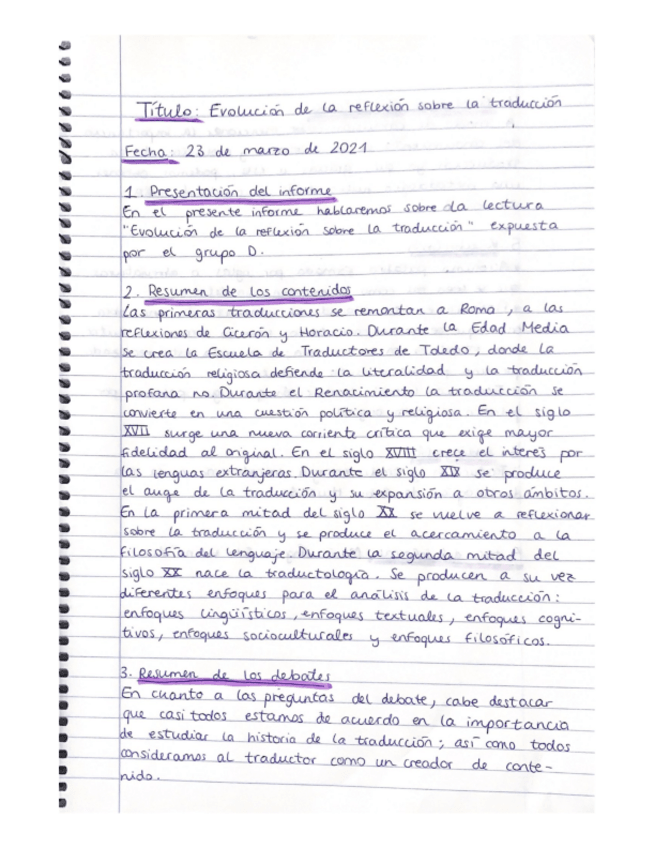 Título: Evolución de la reflexión sobre la traducción
Fecha: 23 de marzo de 2021
1. Presentación del informe
En el presente informe hablaremos sobre la lectura
"Evolución de la reflexión sobre la traducción" expuesta
por el grupo D.
2. Resumen de los contenidos
Las primeras traducciones se remontan a Roma, a las
reflexiones de Cicerón y Horacio. Durante la Edad Media
se crea la Escuela de Traductores de Toledo, donde la
traducción religiosa defiende la literalidad y la traducción
profana no. Durante el Renacimiento la traducción se
convierte en una cuestión política y religiosa. En el siglo
XVII surge una nueva corriente crítica que exige mayor
fidelidad al original. En el siglo XVIII crece el interés por
las lenguas extranjeras. Durante el siglo XIX se produce
el auge de la traducción y su expansión a otros ámbitos.
En la primera mitad del siglo XX se vuelve a reflexionar
sobre la traducción y se produce el acercamiento a la
filosofía del lenguaje. Durante la segunda mitad del
siglo XX nace la traductología. Se producen a su vez
diferentes enfoques para el análisis de la traducción:
enfoques lingüísticos, enfoques textuales, enfoques cogni-
tivos, enfoques socioculturales y enfoques filosóficos.
3. Resumen de los debates
En cuanto a las preguntas del debate, cabe destacar
que casi todos estamos de acuerdo en la importancia
de estudiar la historia de la traducción; así como todos
consideramos al traductor como un creador de conte-
nido.